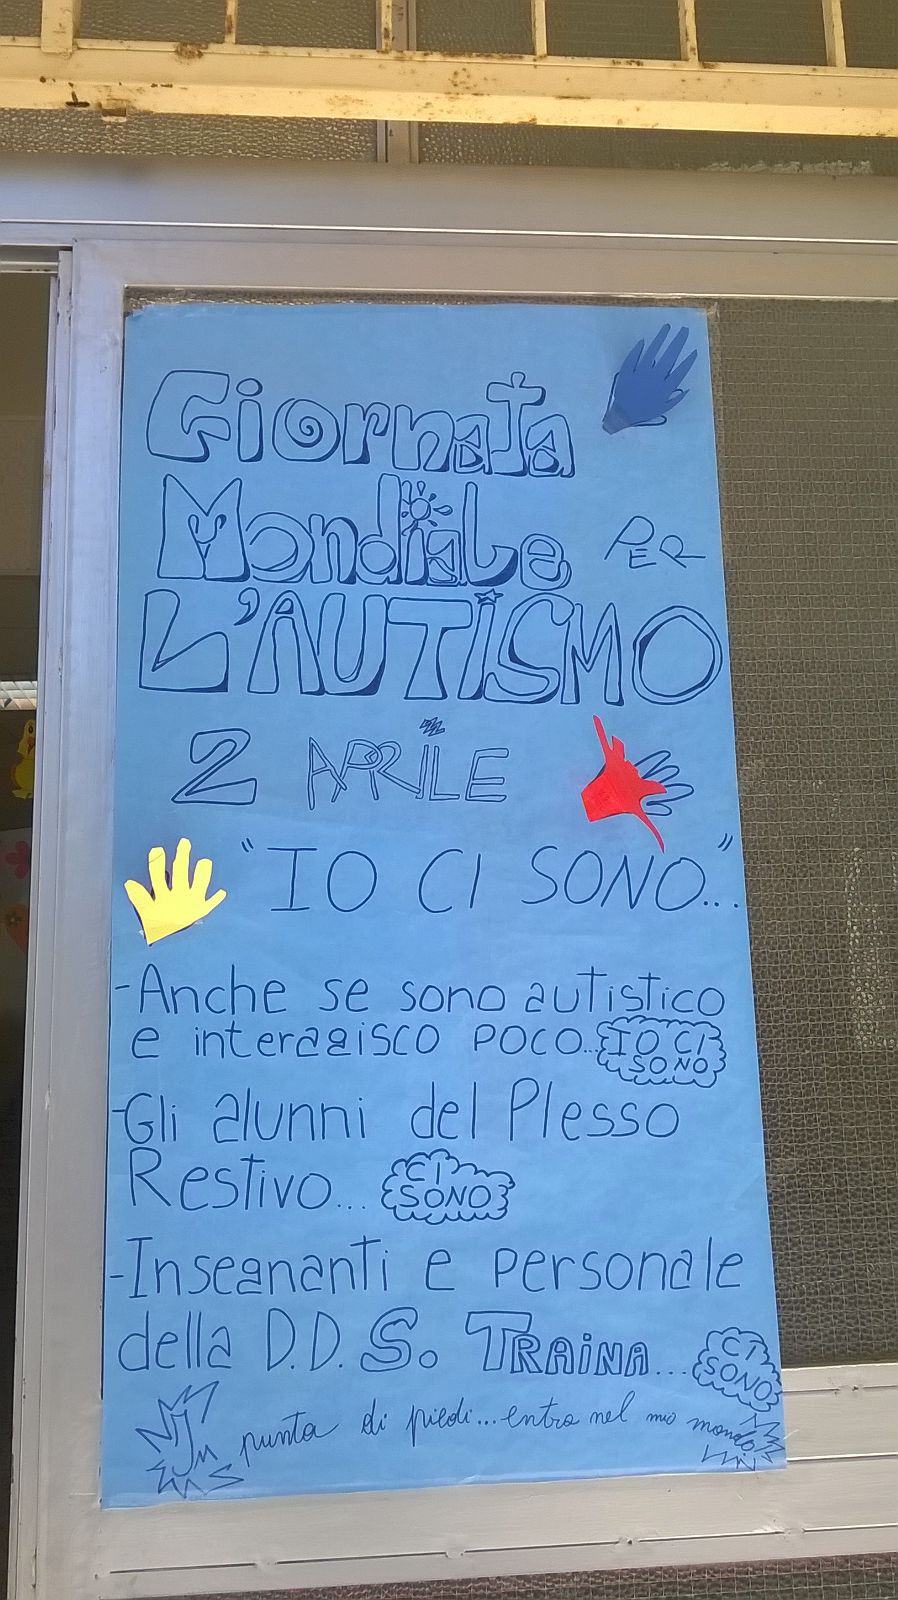 Giornata
Mondiale PER
L'AUTISMO
2 APRILE
"IO CI SONO"...
-Anche se sono autistico
e interagisco POCO... IO CI SONO
-Gli alunni del Plesso
Restivo... CI SONO
-Insegnanti e personale
della D.D. S. TRAINA... CI SONO
In punta di piedi... entra nel mio mondo